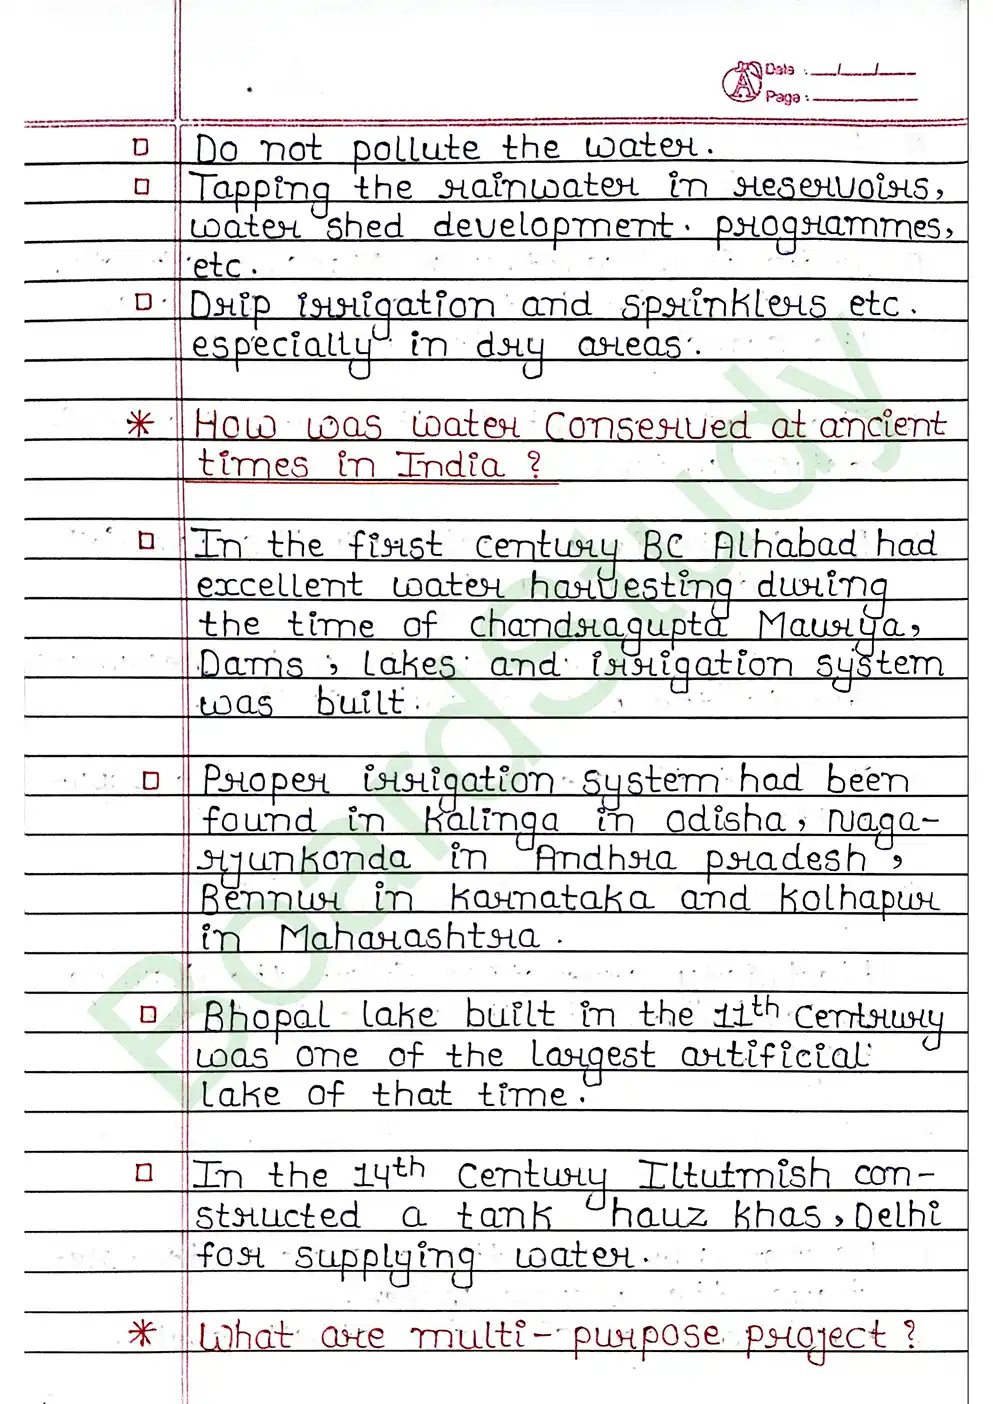 Date : __/__/__
Page : ________
□ Do not pollute the water.
□ Tapping the rainwater in reservoirs,
water shed development. programmes,
etc.
□ Drip irrigation and sprinklers etc.
especially in dry areas.
* How was water Conserved at ancient
times in India ?
□ In the first century BC Alhabad had
excellent water harvesting during
the time of chandragupta Maurya,
Dams , lakes and irrigation system
was built.
□ Proper irrigation system had been
found in Kalinga in odisha, Naga-
rjunkonda in Andhra pradesh ,
Bennur in Karnataka and Kolhapur
in Maharashtra .
□ Bhopal lake built in the 11th centrury
was one of the largest artificial
lake of that time.
□ In the 14th century Iltutmish con-
structed a tank hauz khas, Delhi
for supplying water.
* What are multi-purpose project ?
BoardStudy